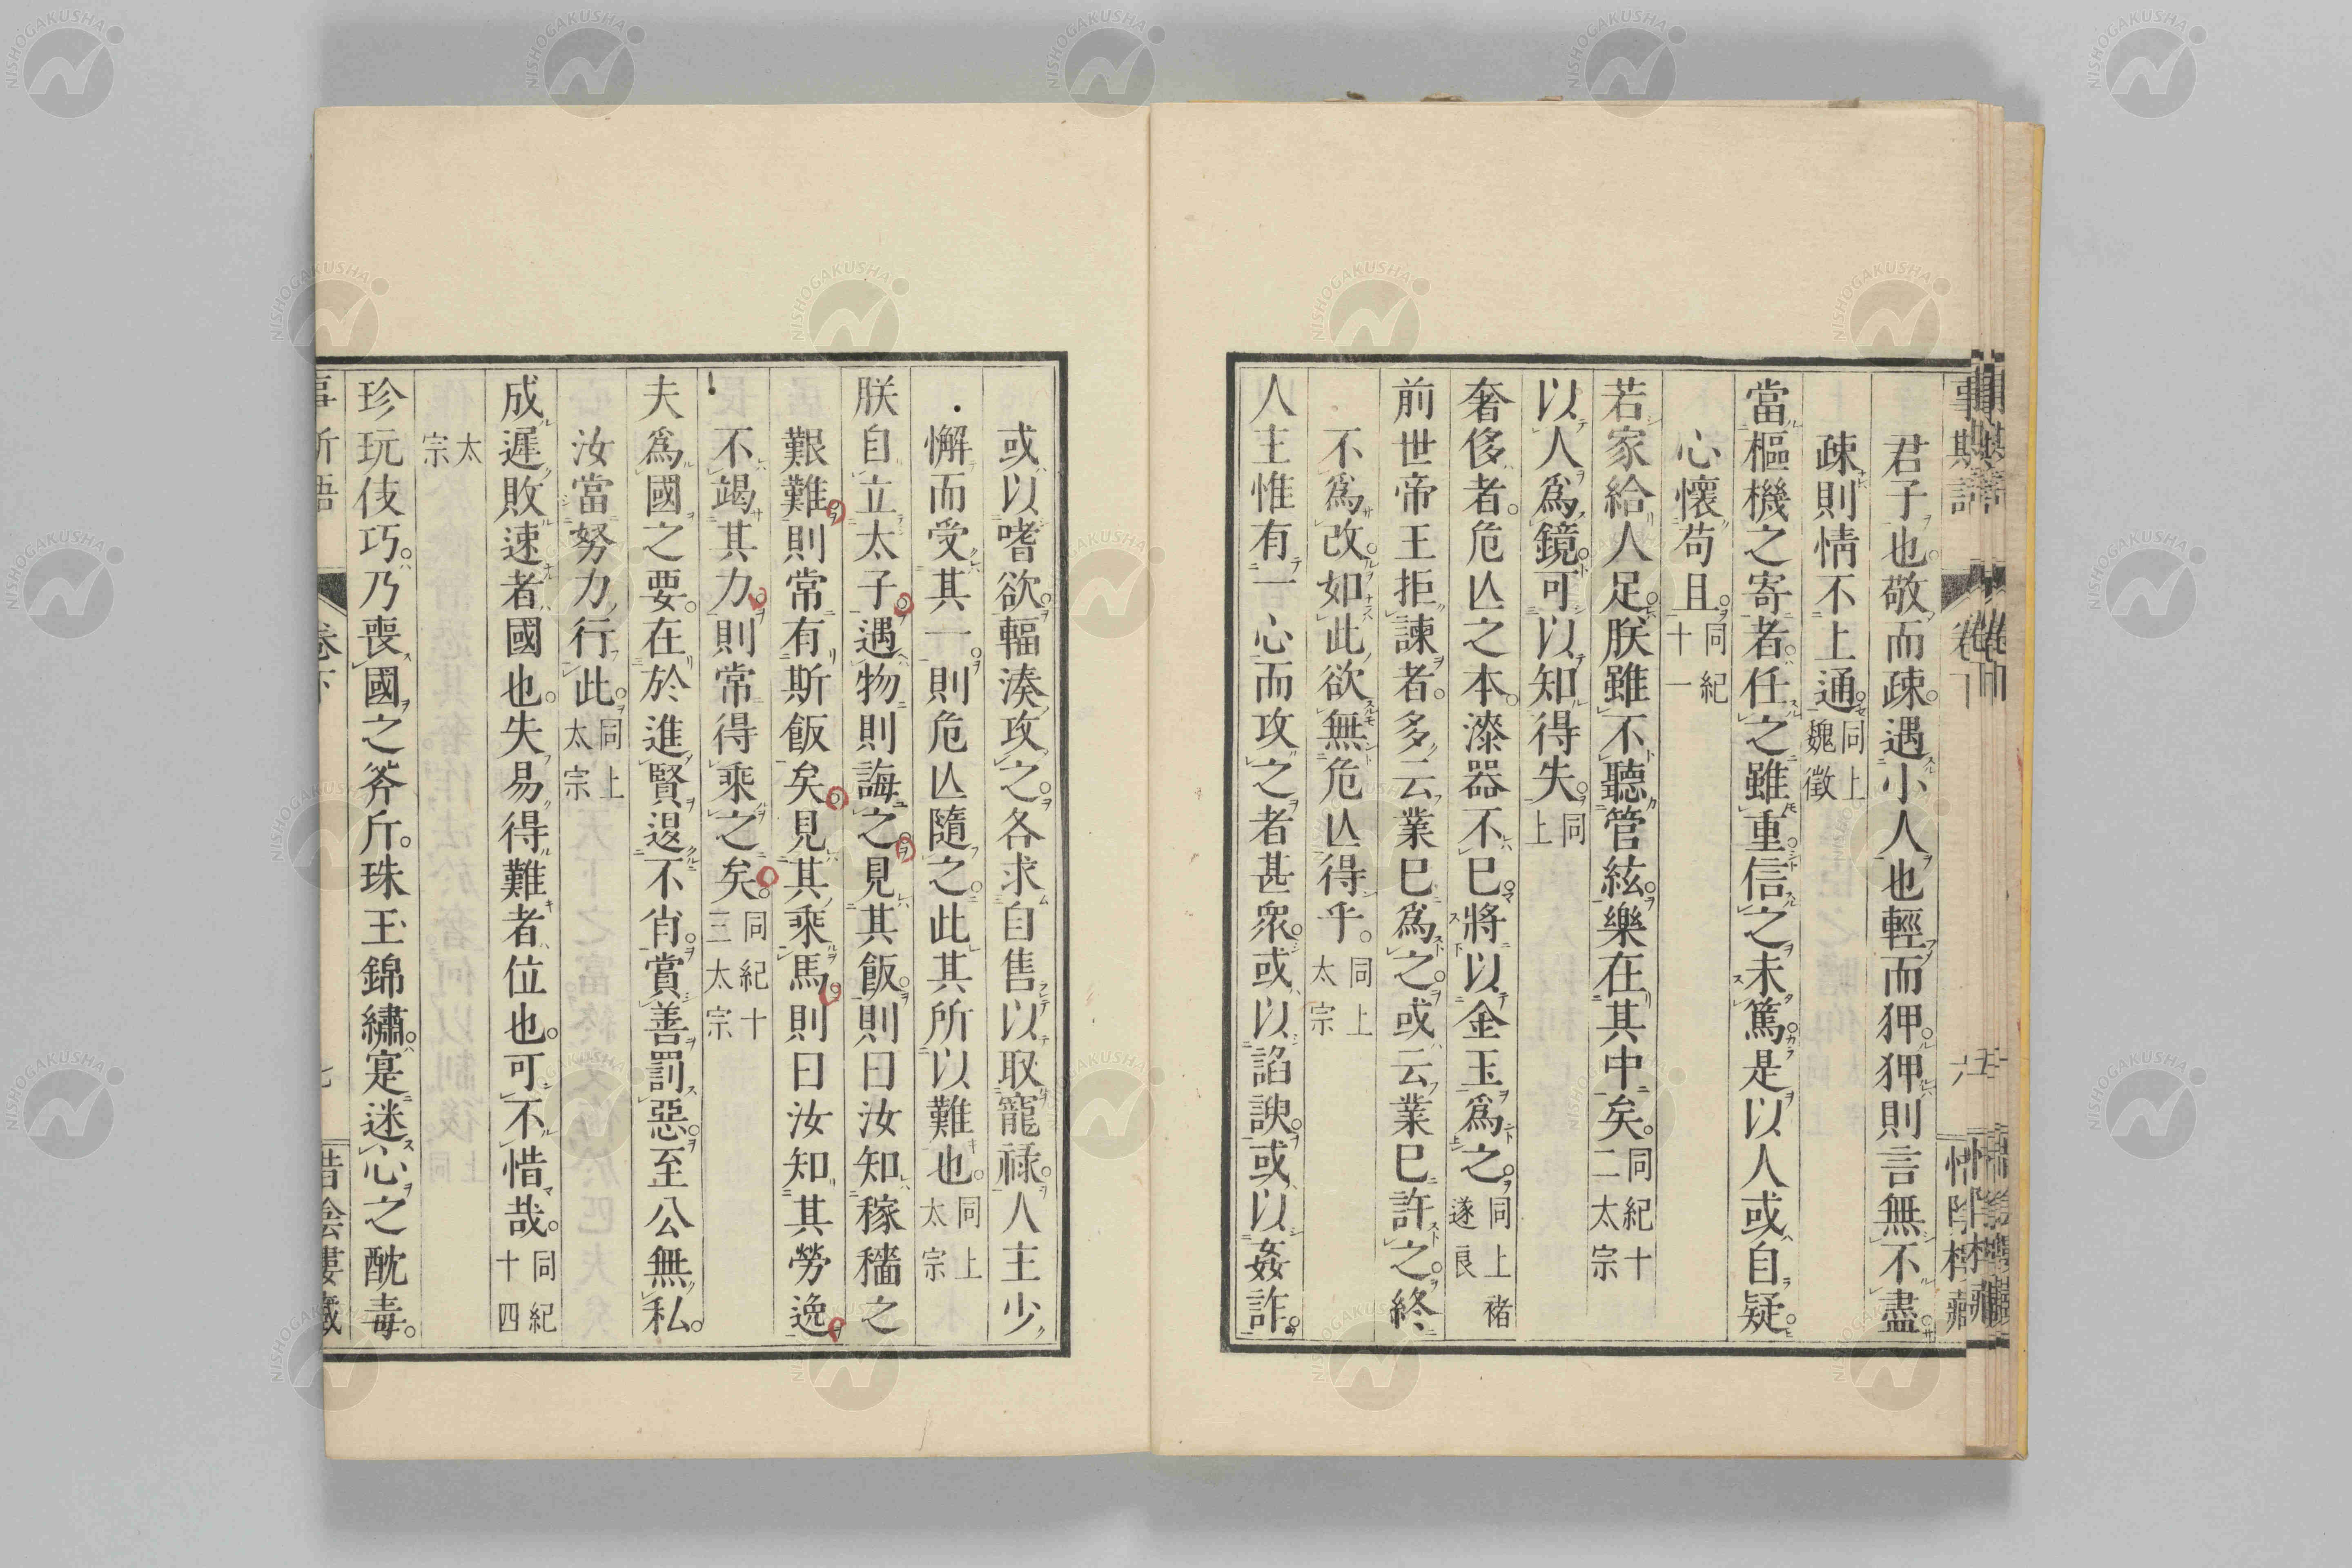 君子也敬而疎。遇小人也輕而狎。狎則言無不盡。
疎則情不上通。同上魏徵
當樞機之寄者。任之雖重。信之未篤。是以人或自疑。
心懷苟且。同紀十一
若家給人足。朕雖不聽管絃。樂在其中矣。同紀十二太宗
以人爲鏡。可以知得失。同上
奢侈者。危亾之本。漆器不已。將以金玉爲之。同上褚遂良
前世帝王拒諫者。多云業已爲之。或云業已許之。終
不爲改。如此欲無危亾得乎。同上太宗
人主惟有一心而攻之者甚衆。或以諂諛。或以姦詐。
或以嗜欲。輻湊攻之。各求自售以取寵祿。人主少
懈而受其一。則危亾隨之。此其所以難也。同上太宗
朕自立太子。遇物則誨之。見其飯。則曰汝知稼穡之
艱難。則常有斯飯矣。見其乘馬。則曰汝知其勞逸。
不竭其力。則常得乘之矣。同紀十三太宗
夫爲國之要。在於進賢退不肖。賞善罰惡。至公無私。
汝當努力行此。同上太宗
成遲敗速者國也。失易得難者位也。可不惜哉。同紀十四
太宗
珍玩伎巧。乃喪國之斧斤。珠玉錦繡。寔迷心之酖毒。
事斯語 卷下 七 惜陰書藏